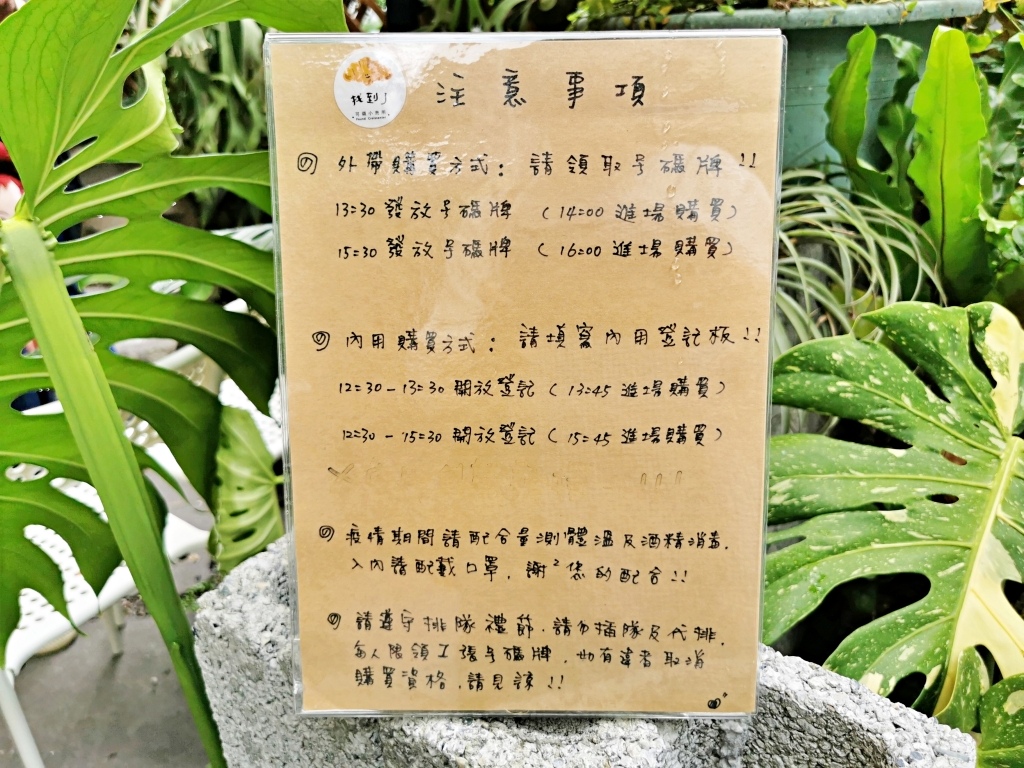 找到了
注意事項
外帶購買方式：請領取号碼牌!!
13:30 發放号碼牌 (14:00 進場購買)
15:30 發放号碼牌 (16:00 進場購買)
內用購買方式：請填寫內用登記板!!
12:30-13:30 開放登記 (13:45 進場購買)
12:30-15:30 開放登記 (15:45 進場購買)
疫情期間請配合量測體溫及酒精消毒，
入內請配戴口罩，謝²您的配合!!
請遵守排隊禮節，請勿插隊及代排，
每人限領1張号碼牌，如有違者取消
購買資格，請見諒!!